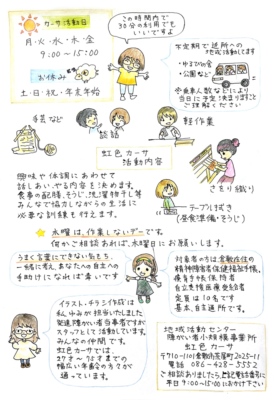 カーサ活動日
月・火・水・木・金
9:00~15:00
お休み
土・日・祝・年末年始
この時間内で
30分の利用でも
いいですよ
不定期で近所への
地域活動してます
・ゆるびの舎
・公園など
※乗車人数などにより
当日に予定決まりますこと
ご理解ください
手芸など
談話
軽作業
虹色カーサ
活動内容
さをり織り
テーブルふき
(昼食準備・そうじ)
興味や体調にあわせて
話しあい、やる内容を決めます。
食事の配膳、そうじ、洗濯物干し等
みんなで協力しながらの生活に
必要な訓練も行えます。
水曜は、作業しないデーです。
何かご相談あれば、水曜日にお願いします。
うまく言葉にできない気もち、
一緒に考え、あなたへの自立への
手助けになれば幸いです
対象者の方は倉敷在住の
精神障害者保健福祉手帳、
療育手帳保持者
自立支援医療受給者
定員は10名です
基本、自主通所です。
イラスト・チラシ作成は
私ゆみが担当いたしました
発達障がい者当事者ですが
スタッフとして活動しています。
みんなの仲間です。
虹色カーサでは、
幅広い年齢の方々が
通っています。
地域活動センター
障がい者小規模事業所
虹色カーサ
ご相談ありましたら、上記電話番号に
平日9:00~15:00にお掛け下さい